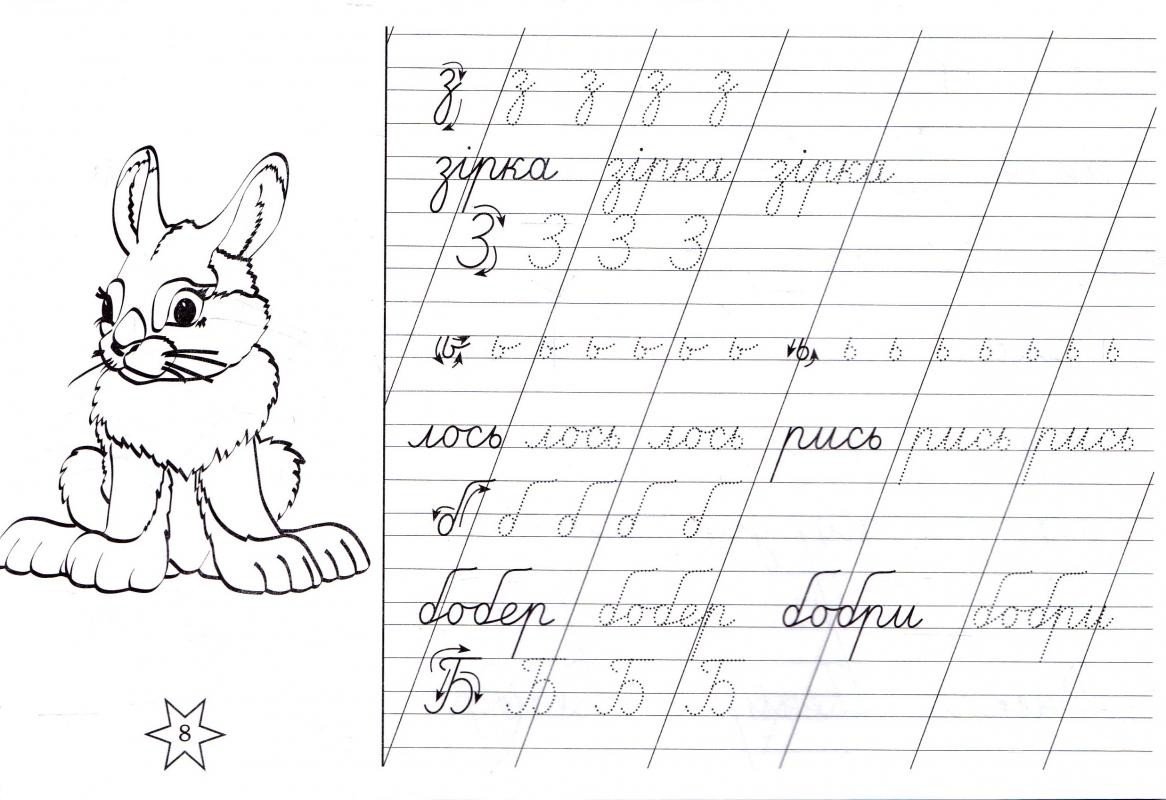 з з з з з
зірка зірка зірка
З З З З
ь ь ь ь ь ь ь ь ь ь ь ь ь ь ь
лось лось лось рись рись рись
б б б б б
бобер бобер бобри бобри
Б Б Б Б
8